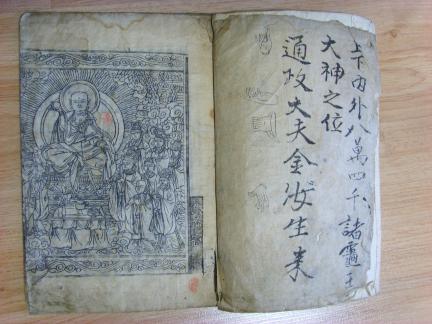 上下內外八萬四千諸靈王
大神之位
通政大夫金汝生来